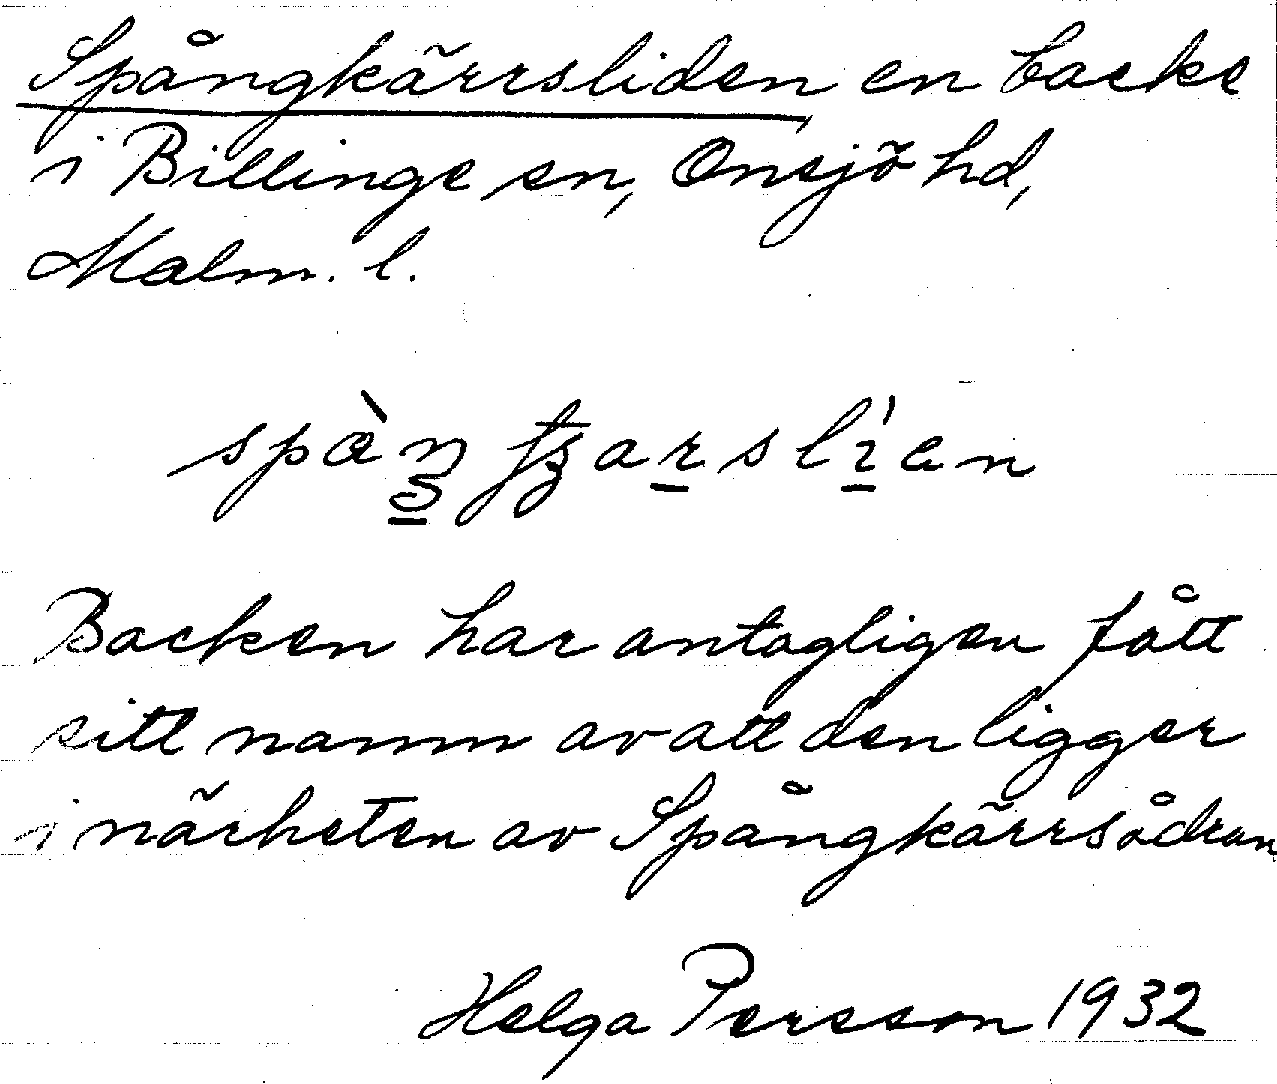 Spångkärrsliden en backe
i Billinge sn, Onsjö hd,
Malm. l.
Backen har antagligen fått
sitt namn av att den ligger
i närheten av Spångkärrsådran
Helga Persson 1932